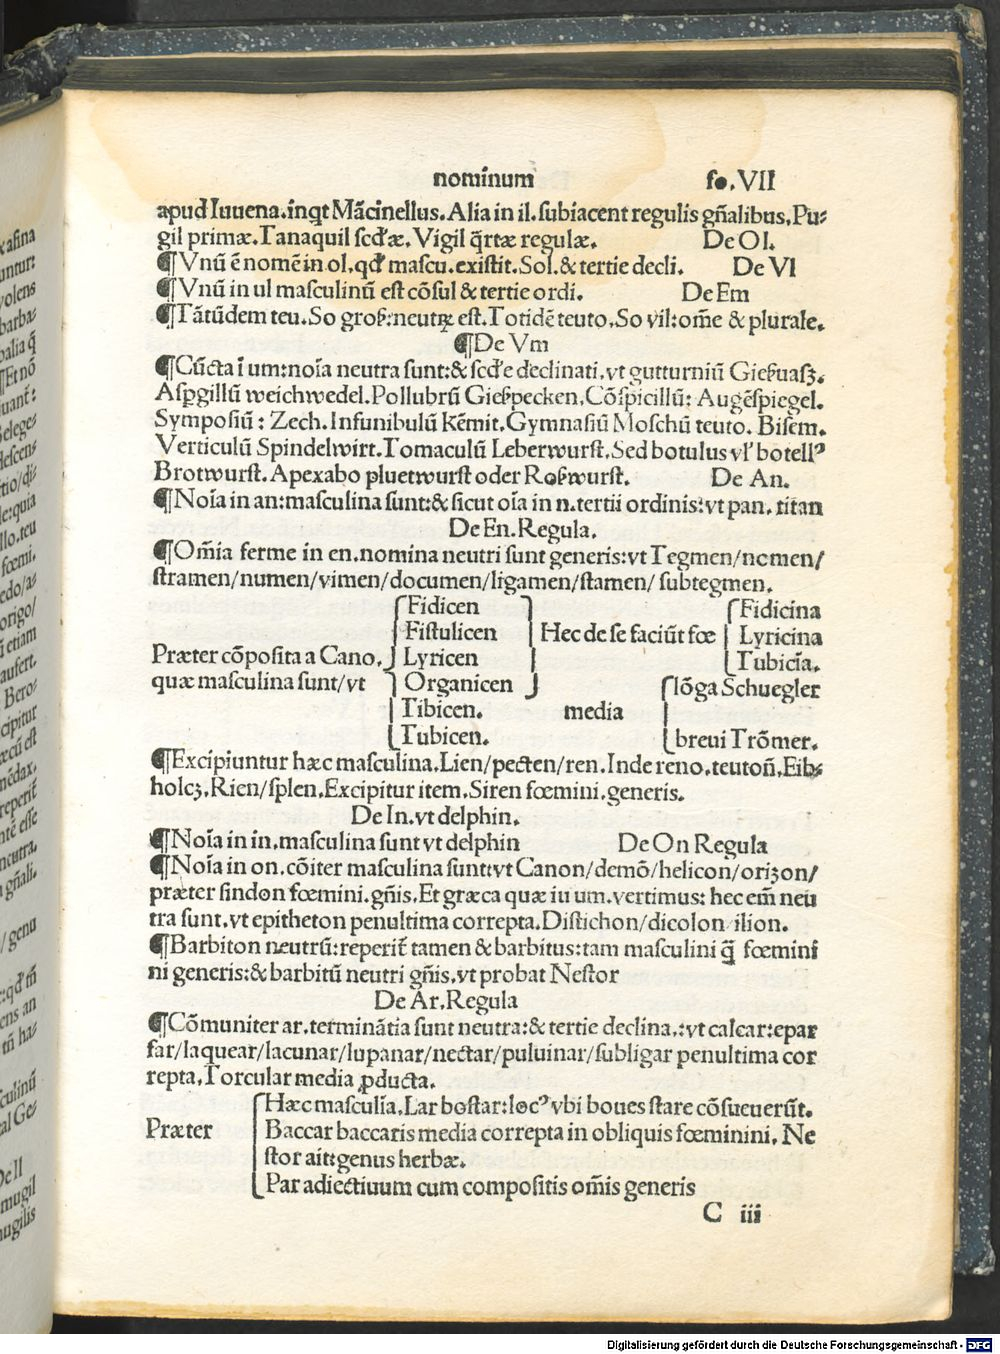 nominum fo.VII
apud Iuuena.inqt Mãcinellus.Alia in il.subiacent regulis gñalibus,Pu-
gil primæ.Tanaquil scd'æ.Vigil q̃rtæ regulæ. De Ol.
¶Vnũ ẽ nomẽ in ol.qd' mascu.existit.Sol.& tertie decli. De Vl
¶Vnũ in ul masculinũ est cõsul & tertie ordi. De Em
¶Tãtũdem teu.So groß:neutrꝝ est.Totidẽ teuto.So vil:om̃e & plurale.
¶De Vm
¶Cũcta ĩ um:noĩa neutra sunt:& scd'e declinati.vt gutturniũ Gießuasʒ.
Aspgillũ weichwedel.Pollubrũ Gießpecken.Cõspicillũ: Augẽspiegel.
Symposiũ: Zech.Infunibulũ Kẽmit.Gymnasiũ Moschũ teuto. Bisem.
Verticulũ Spindelwirt.Tomaculũ Leberwurst.Sed botulus vl' botellꝰ
Brotwurst.Apexabo pluetwurst oder Roßwurst. De An.
¶Noĩa in an:masculina sunt:& sicut oĩa in n.tertii ordinis:vt pan.titan
De En.Regula.
¶Om̃ia ferme in en.nomina neutri sunt generis:vt Tegmen/nomen/
stramen/numen/vimen/documen/ligamen/stamen/ subtegmen.
Fidicen Fidicina
Fistulicen Hec de se faciũt fœ Lyricina
Præter cõposita a Cano. Lyricen Tubicĩa.
quæ masculina sunt/vt Organicen lõga Schuegler
Tibicen. media
Tubicen. breui Trõmer.
¶Excipiuntur hæc masculina.Lien/pecten/ren.Inde reno.teutoñ.Eib-
holcʒ.Rien/splen.Excipitur item.Siren fœmini.generis.
De In.vt delphin.
¶Noĩa in in.masculina sunt vt delphin De On Regula
¶Noĩa in on.cõiter masculina sunt:vt Canon/demõ/helicon/oriʒon/
præter sindon fœmini.gñis.Et græca quæ iu um.vertimus: hec em̃ neu
tra sunt.vt epitheton penultima correpta.Distichon/dicolon/ilion.
¶Barbiton neutrũ:reperit̃ tamen & barbitus:tam masculini q̃ fœmini
ni generis:& barbitũ neutri gñis.vt probat Nestor
De Ar.Regula
¶Cõmuniter ar.terminãtia sunt neutra:& tertie declina.:vt calcar:epar
far/laquear/lacunar/lupanar/nectar/puluinar/subligar penultima cor
repta.Torcular media ꝓducta.
Hæc masculĩa.Lar bostar:locꝰ vbi boues stare cõsueuerũt.
Præter Baccar baccaris media correpta in obliquis fœminini. Ne
stor ait:genus herbæ.
Par adiectiuum cum compositis om̃is generis
C iii
Digitalisierung gefördert durch die Deutsche Forschungsgemeinschaft - DFG